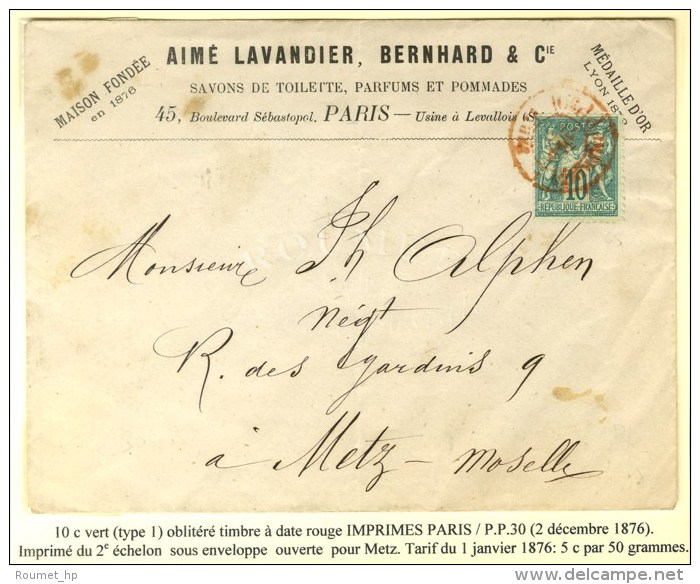 AIMÉ LAVANDIER, BERNHARD & CIE
MAISON FONDÉE
en 1876
SAVONS DE TOILETTE, PARFUMS ET POMMADES
MÉDAILLE D'OR
LYON 1872
45, Boulevard Sébastopol. PARIS — Usine à Levallois
POSTE
10
RÉPUBLIQUE FRANÇAISE
Monsieur Th Alphen
Négt
R. des Jardins 9
à Metz - Moselle
10 c vert (type 1) oblitéré timbre à date rouge IMPRIMES PARIS / P.P.30 (2 décembre 1876).
Imprimé du 2e échelon sous enveloppe ouverte pour Metz. Tarif du 1 janvier 1876: 5 c par 50 grammes.
Roumet_hp
delcampe.net